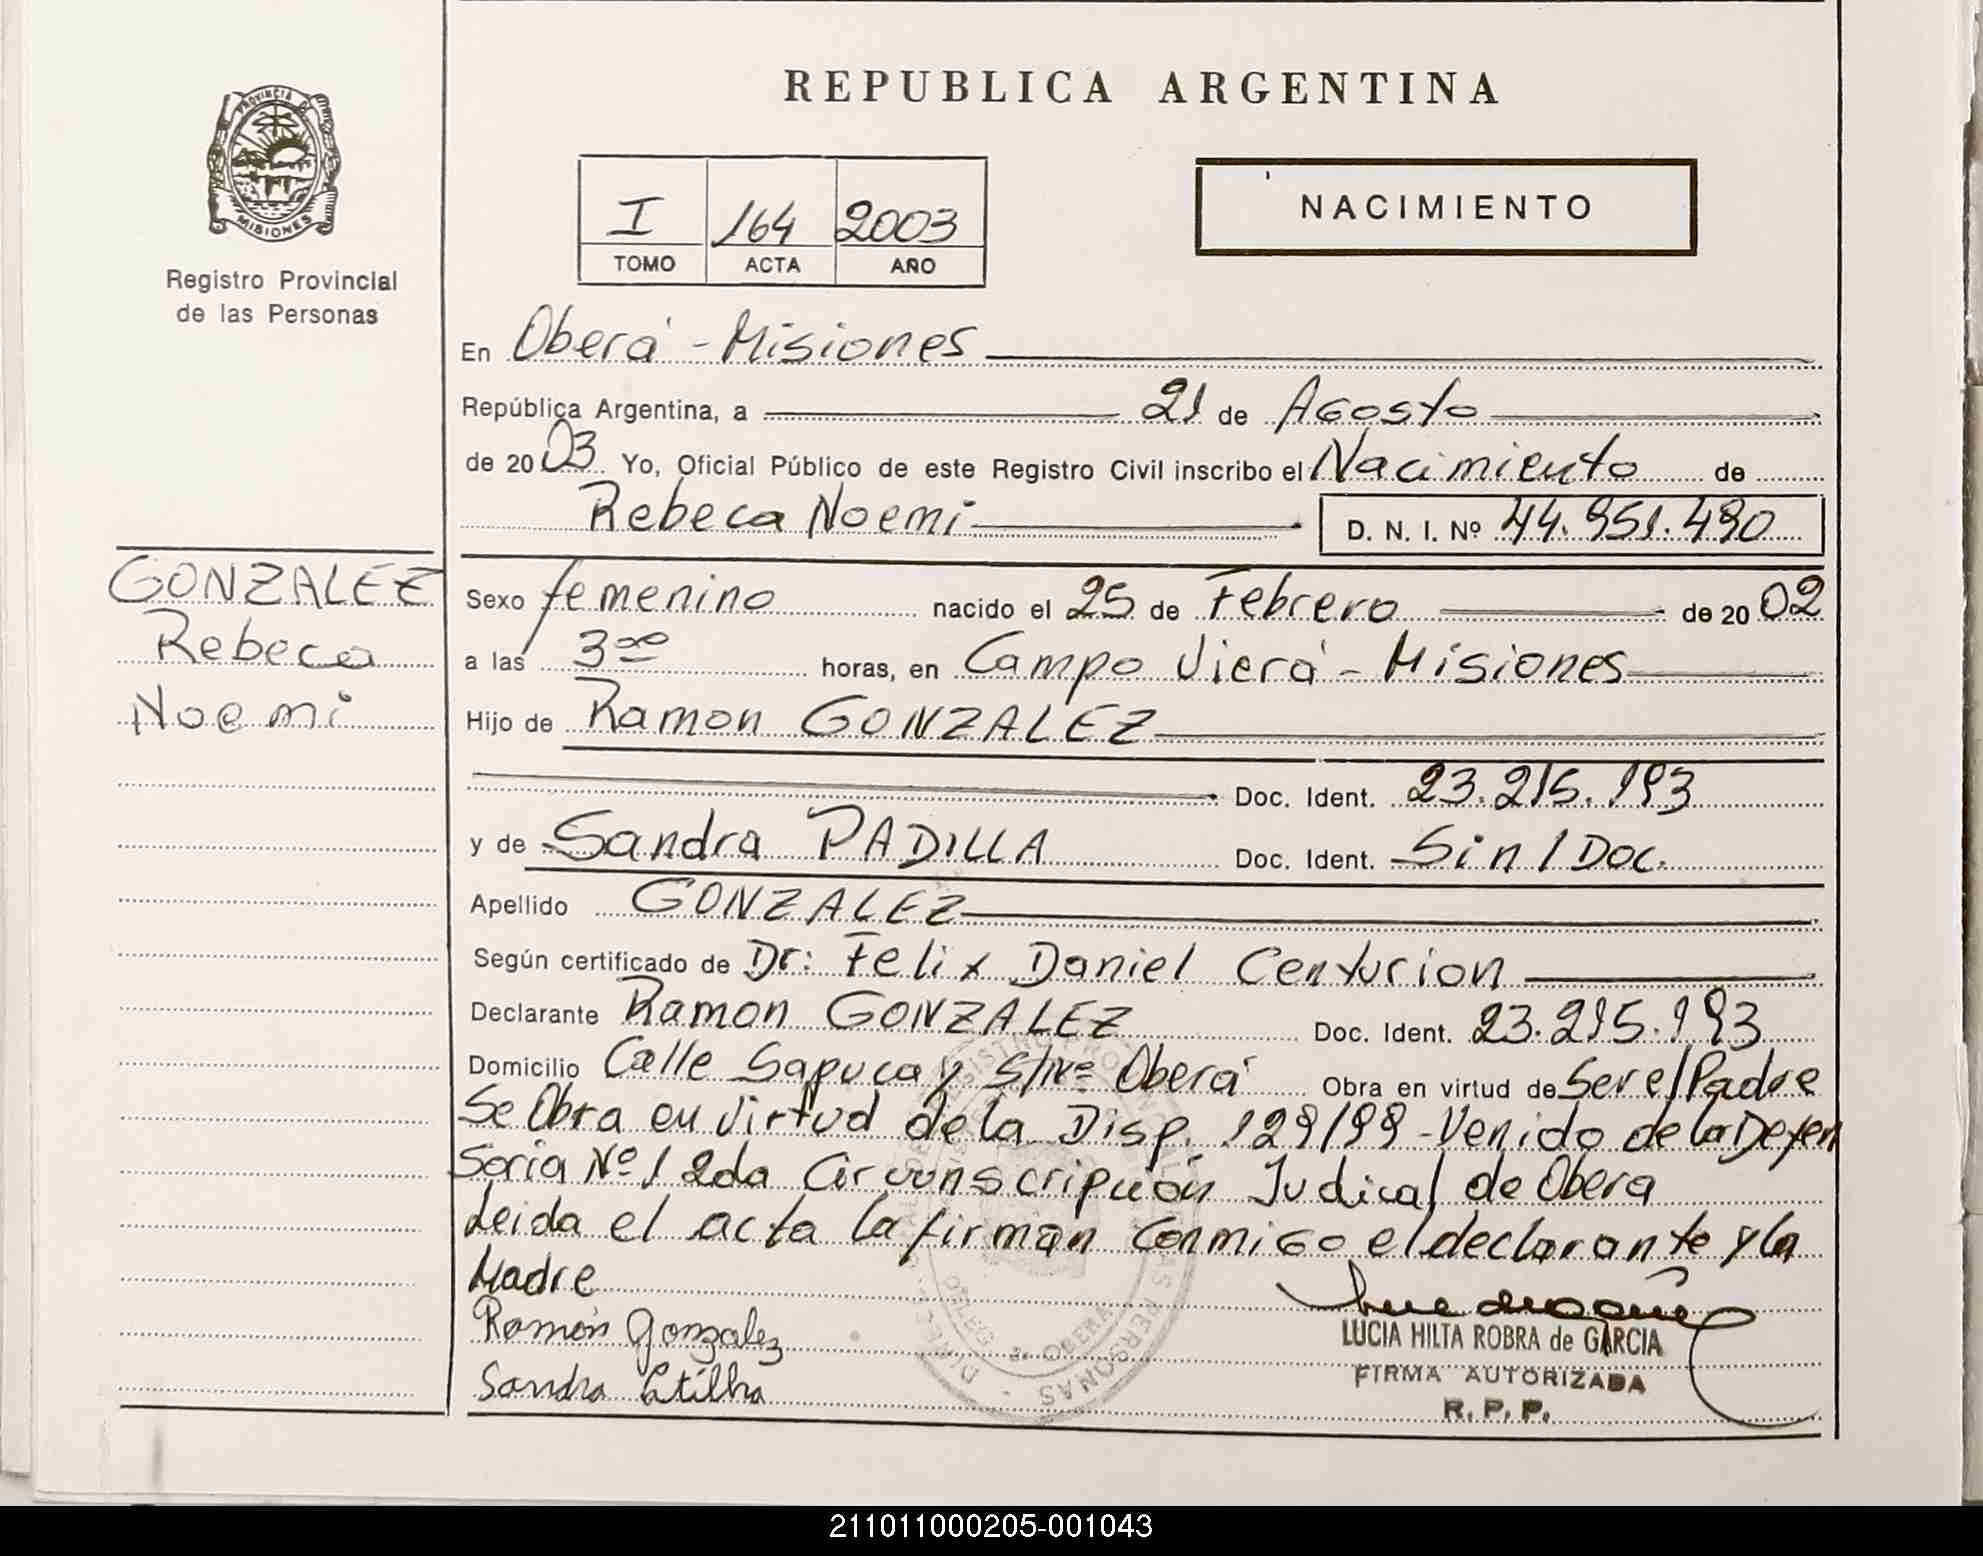 REPUBLICA ARGENTINA
PROVINCIA DE
MISIONES
Registro Provincial
de las Personas
I 164 2003
TOMO ACTA AÑO
NACIMIENTO
En Oberá - Misiones
República Argentina, a 21 de Agosto
de 2003 Yo, Oficial Público de este Registro Civil inscribo el Nacimiento de
Rebeca Noemi D. N. I. Nº 44.951.490
GONZALEZ
Rebeca
Noemi
Sexo femenino nacido el 25 de Febrero de 20 02
a las 3 horas, en Campo Vierá - Misiones
Hijo de Ramon GONZALEZ
Doc. Ident. 23.215.193
y de Sandra PADILLA Doc. Ident. Sin/Doc.
Apellido GONZALEZ
Según certificado de Dr: Felix Daniel Centurion
Declarante Ramon GONZALEZ Doc. Ident. 23.215.193
Domicilio Calle Sapucay S/Nº Oberá Obra en virtud de Ser el Padre
Se Obra en virtud de la Disp. 129/99 - Venido de la Defen
Soria Nº 1 2da Circunscripción Judical de Obera
Leida el acta la firman Conmigo el declarante y la
Madre
Ramón Gonzalez
Sandra
LUCIA HILTA ROBRA de GARCIA
FIRMA AUTORIZADA
R. P. P.
211011000205-001043